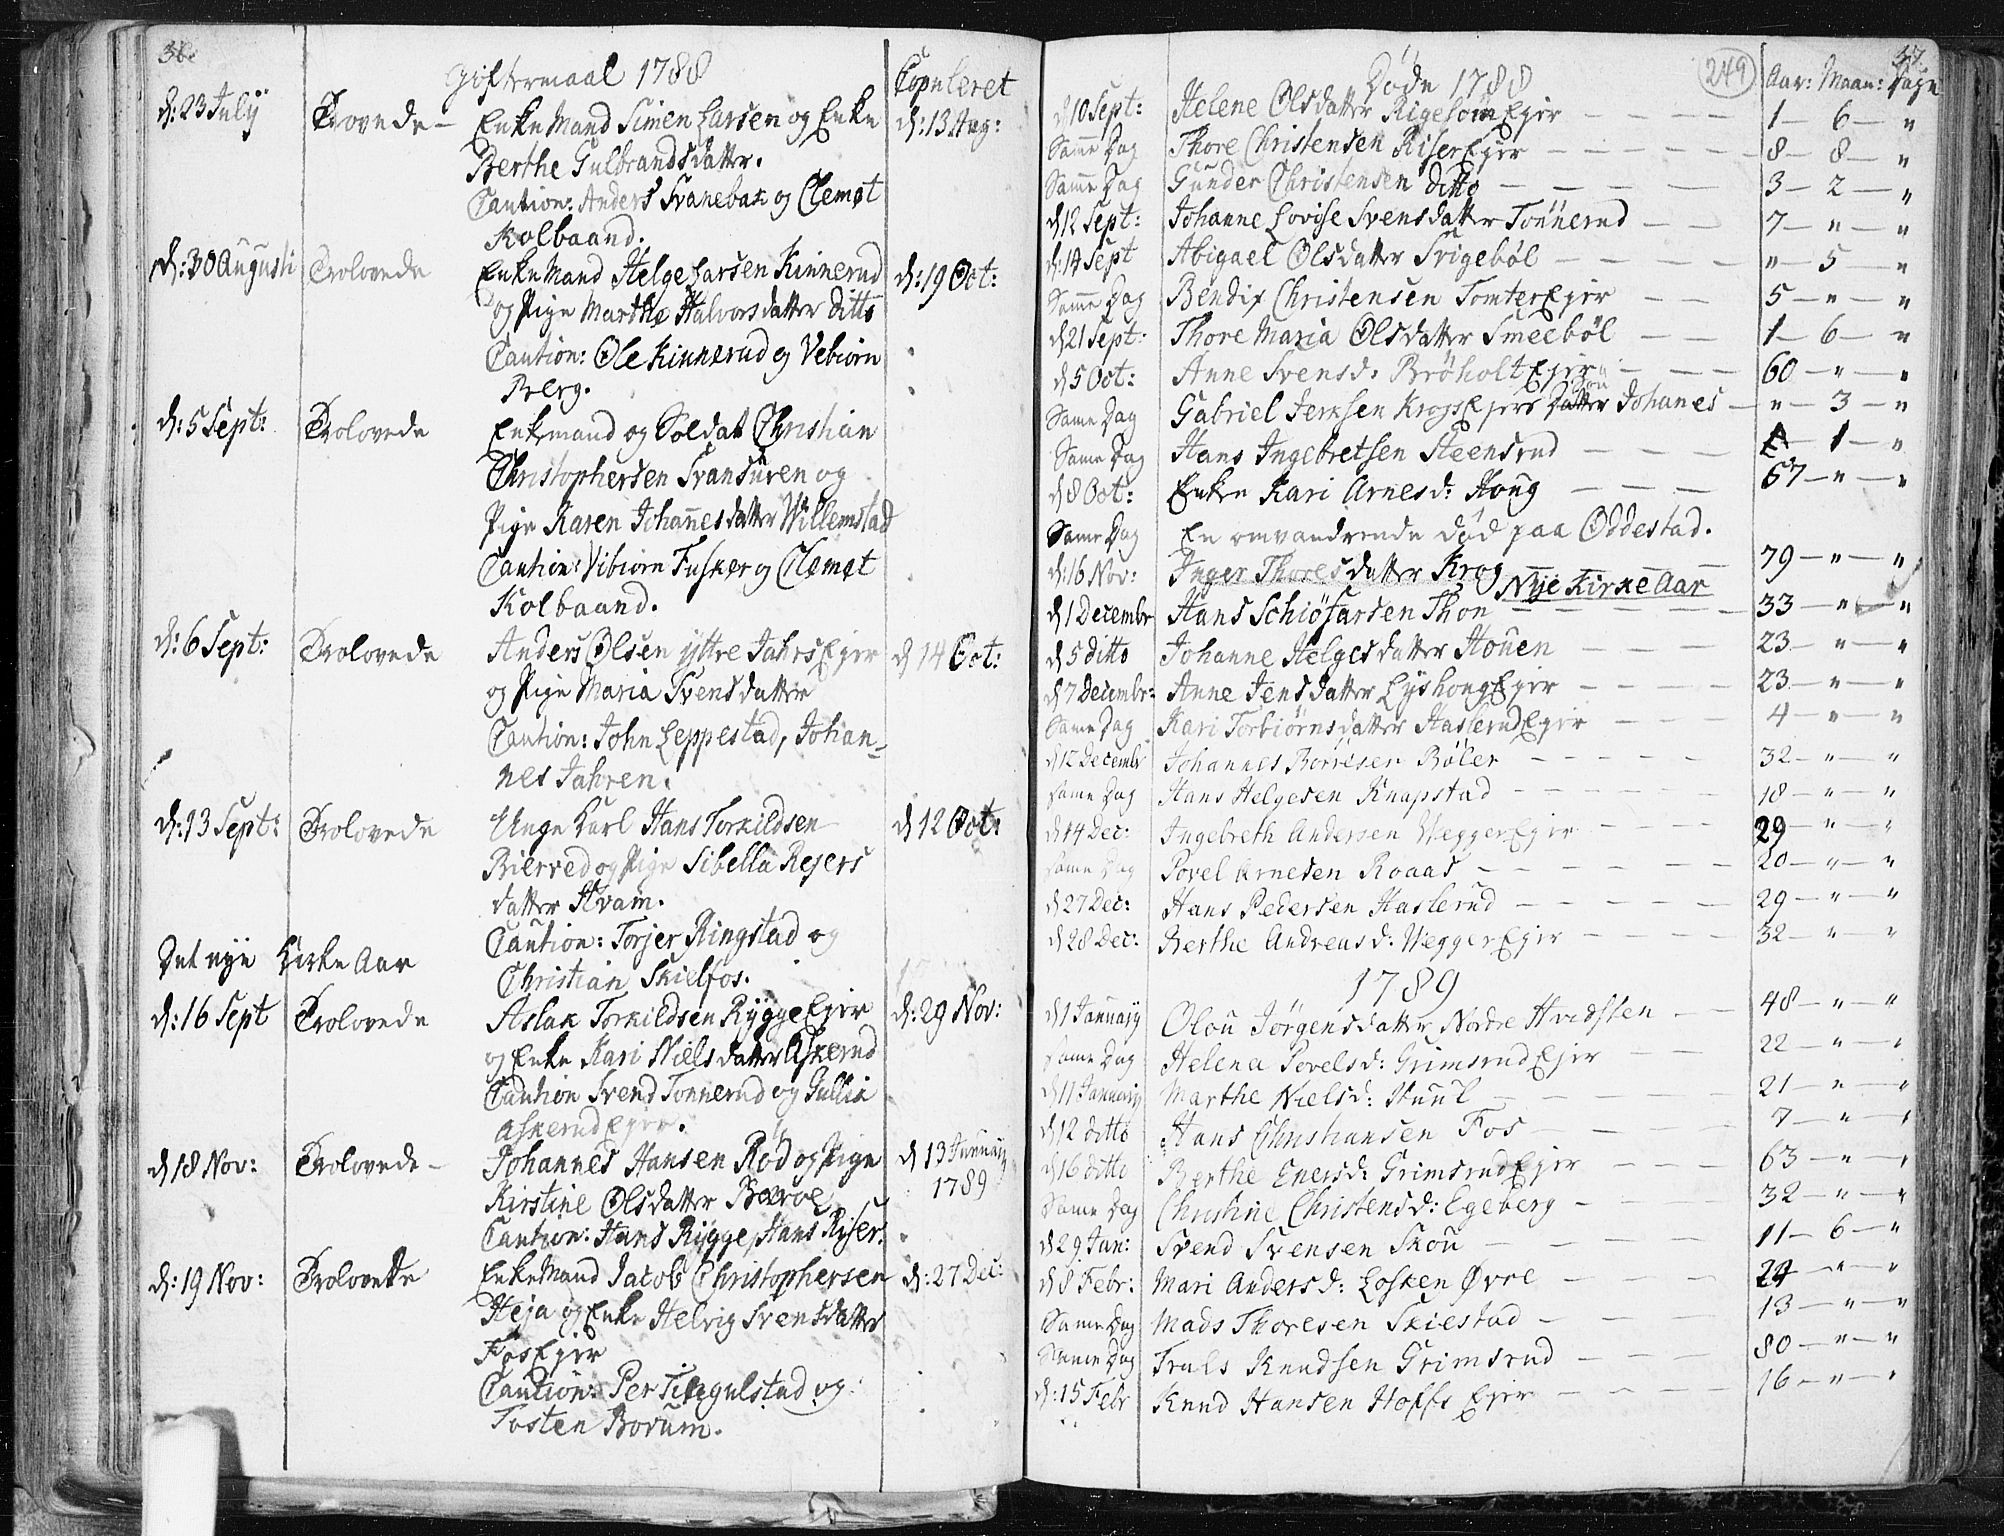 36.
Giftermaal 1788
Copuleret
d: 23 July Trolovede – EnkeMand Simen Larsen og Enke d: 13 Aug:
Berthe Gulbrandsdatter.
Caution: Anders Svanebak og Clemet
Kolbaand.
d: 30 Augusti Trolovede EnkeMand Helge Larsen Kinnerud d: 19 Oct:
og Pige Marthe Halvorsdatter ditto
Caution: Ole Kinnerud og Vebiørn
Berg.
d: 5 Sept: Trolovede Enkemand og Soldat Christian
Christophersen Svansuren og
Pige Karen Johannesdatter Willemstad
Caution: Vibiorn Fusker og Clemet
Kolbaand.
d: 6 Sept: Trolovede Anders Olsen yttre Jahrs Ejer d 14 Oct:
og Pige Maria Svensdatter
Caution: John Leppestad, Johan=
nes Jahren.
d: 13 Sept: Trolovede Unge Karl Hans Torkildsen d 12 Oct:
Bierved og Pige Sibella Rejers
datter Hvam.
Caution: Torjer Ringstad og
Det nye Kirke Aar
Christian Skielfos.
d: 16 Sept Trolovede Aslak Torkildsen Rygge Ejer d: 29 Nov:
og Enke Kari Nielsdatter Askerud
Caution Svend Tonnerud og Gullik
Askerud Ejer.
d 18 Nov: Trolovede – Johannes Hansen Rød og Pige d 13 Januarij
Kirstine Olsdatter Barve 1789
Caution: Hans Rygge, Hans Riser.
d: 19 Nov: Trolovede EnkeMand Jacob Christophersen d: 27 Dec:
Heja og Enke Helvig Svensdatter
Fos Ejer
Caution: Per Tikgulstad og
Tosten Borum.
37.
249
Døde 1788
Aar: Maan: Dage
d 10 Sept: Helene Olsdatter Rigesom Ejer — 1 — 6 — "
Same Dag Thore Christensen Riser Ejer — 8 — 8 — "
Same Dag Gunder Christensen ditto — 3 — 2 — "
d 12 Sept: Johanne Lovise Svensdatter Tonnerud — 7 — " — "
d: 14 Sept Abigael Olsdatter Svigebøl — " — 5 — "
Same Dag Bendix Christensen Tomter Ejer — 5 — " — "
d 21 Sept: Thore Maria Olsdatter Smeebøl — 1 — 6 — "
d 5 Oct: Anne Svensd: Brøholt Ejer — 60 — " — "
Same Dag Gabriel Jensen Krogs Ejers Søn Johanes — " — 3 — "
Same Dag Hans Ingebretsen Steensrud — 1 — "
d 8 Oct: Enke Kari Arnesd: Houg — 67 — " — "
Same Dag En omvandrende død paa Oddestad.
d: 16 Nov: Inger Thoresdatter Krog — 79 — " — "
Nye Kirke Aar
d 1 Decembr Hans Schiø Larsen Thon — 33 — " — "
d 5 ditto Johanne Helgesdatter Houen — 23 — " — "
d 7 Decembr: Anne Jensdatter Lyshoug Ejer — 23 — " — "
Same Dag Kari Torbiørnsdatter Haslerud Ejer — 4 — " — "
d 12 Decembr Johannes Borresen Bøler — 32 — " — "
Same Dag Hans Helgesen Knapstad — 18 — " — "
d 14 Dec: Ingebreth Andersen Wegger Ejer — 29 — " — "
Same Dag Povel Arnesen Roaas — 20 — " — "
d 27 Dec: Hans Pedersen Haslerud — 29 — " — "
d 28 Dec: Berthe Andreasd: Wegger Ejer — 32 — " — "
1789
d 1 Januarij Olou Jørgensdatter Nordre Hvidsten — 48 — " — "
Same Dag Helena Povelsd: Grimsrud Ejer — 22 — " — "
d 11 Januarij Marthe Nielsd: Huul — 21 — " — "
d 12 ditto Hans Christiansen Fos — 7 — " — "
d 16 ditto Berthe Enersd: Grimsrud Ejer — 63 — " — "
Same Dag Christine Christensd: Egeberg — 32 — " — "
d 29 Jan: Svend Svensen Skou — 11 — 6 — "
d 8 Febr: Mari Andersd: Losken Øvre — 24 — " — "
Same Dag Mads Thoresen Skiestad — 13 — " — "
Same Dag Truls Knudsen Grimsrud — 80 — " — "
d: 15 Febr Knud Hansen Hoffs Ejer — 16 — " — "